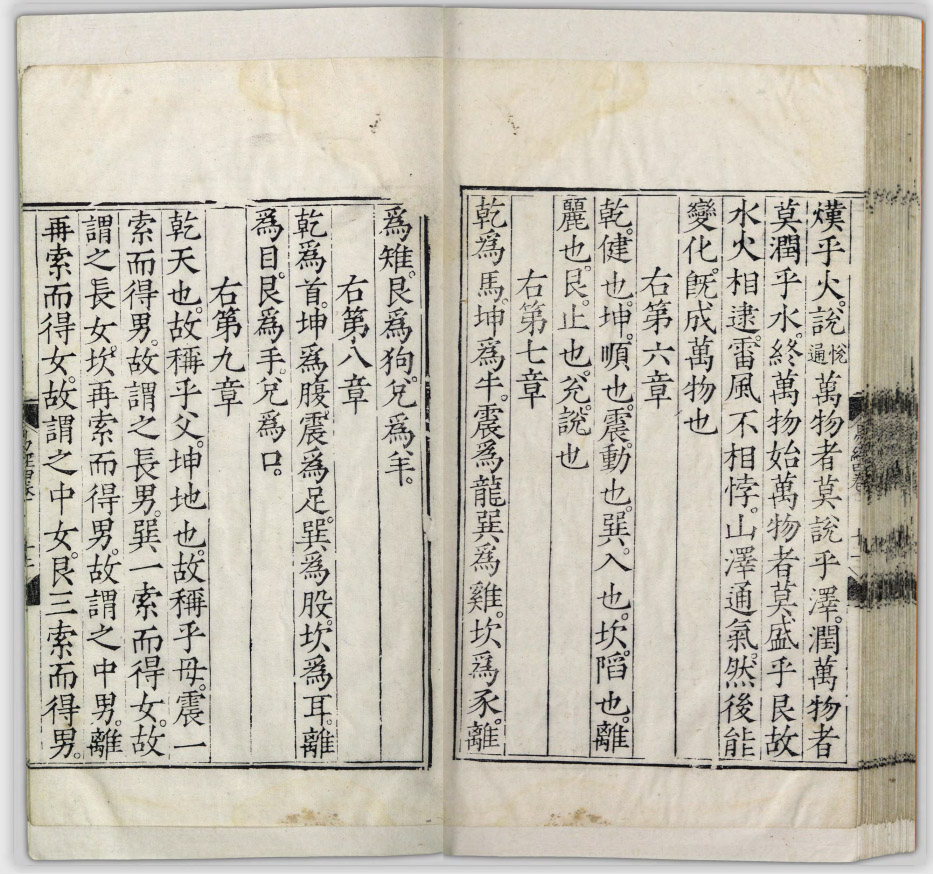 熯乎火。說悅通萬物者莫說乎澤。潤萬物者
莫潤乎水。終萬物始萬物者莫盛乎艮故
水火相逮。雷風不相悖。山澤通氣。然後能
變化。旣成萬物也
右第六章
乾。健也。坤。順也。震。動也。巽。入也。坎。陷也。離
麗也。艮。止也。兌。說也
右第七章
乾爲馬。坤爲牛。震爲龍。巽爲雞。坎爲豕。離
爲雉。艮爲狗。兌爲羊。
右第八章
乾爲首。坤爲腹。震爲足。巽爲股。坎爲耳。離
爲目。艮爲手。兌爲口。
右第九章
乾天也。故稱乎父。坤地也。故稱乎母。震一
索而得男。故謂之長男。巽一索而得女。故
謂之長女。坎再索而得男。故謂之中男。離
再索而得女。故謂之中女。艮三索而得男。